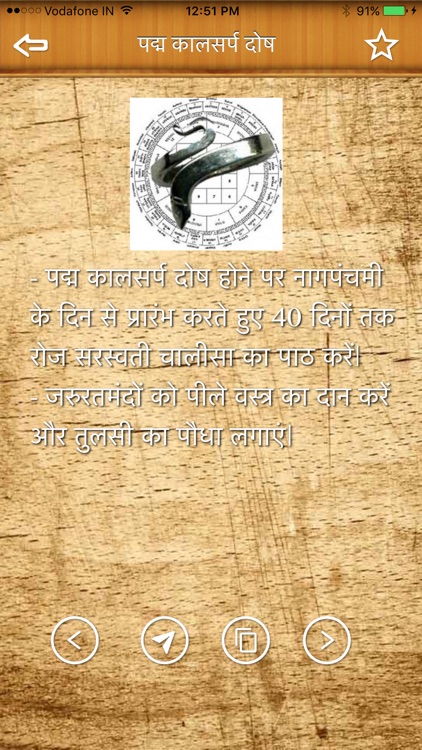 Vodafone IN 12:51 PM 91%
पद्म कालसर्प दोष
- पद्म कालसर्प दोष होने पर नागपंचमी
के दिन से प्रारंभ करते हुए 40 दिनों तक
रोज सरस्वती चालीसा का पाठ करें।
- जरुरतमंदों को पीले वस्त्र का दान करें
और तुलसी का पौधा लगाएं।